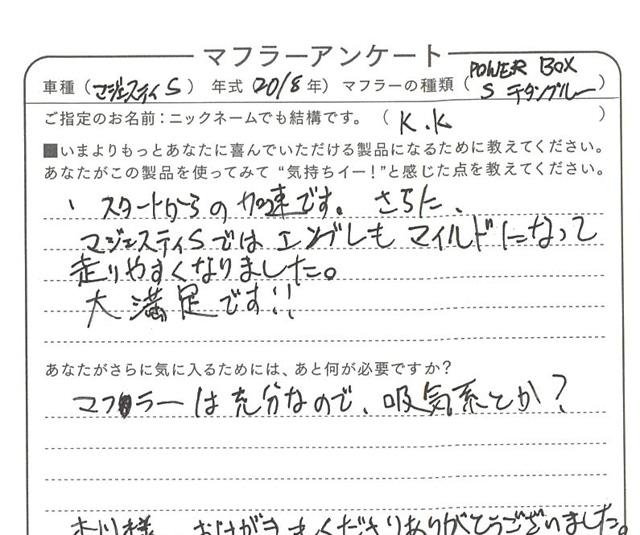 マフラーアンケート
車種（マジェスティS）年式（2018年）マフラーの種類（POWER BOX S チタンブルー）
ご指定のお名前：ニックネームでも結構です。（K.K）
■いまよりもっとあなたに喜んでいただける製品になるために教えてください。
あなたがこの製品を使ってみて“気持ちイー！”と感じた点を教えてください。
、スタートからの加速です。さらに、
マジェスティSではエンブレもマイルドになって
走りやすくなりました。
大満足です!!
あなたがさらに気に入るためには、あと何が必要ですか？
マフラーは充分なので、吸気系とか？
様 おはがきくださりありがとうございました。